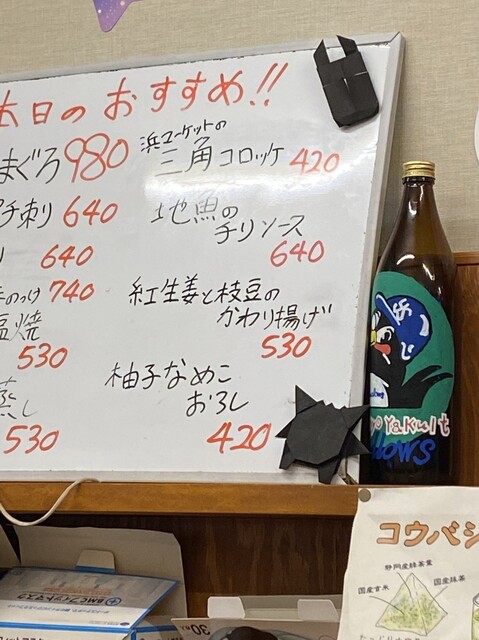 本日のおすすめ!!
まぐろ 980
刺 640
640
のっけ 740
塩焼
530
蒸し
530
浜マーケットの
三角コロッケ 420
地魚の
チリソース
640
紅生姜と枝豆の
かわり揚げ
530
柚子なめこ
おろし
420
Yakult
llows
コウバシ
静岡産緑茶葉
国産玄米
国産抹茶
BMCフィットマスク
30